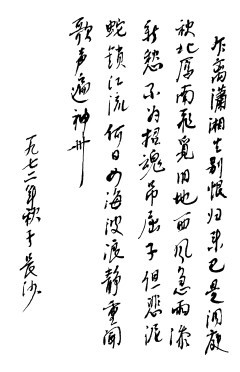 乍离潇湘生别恨归来已是洞庭
秋北雁南飛觅旧地西风急雨添
新愁不为招魂吊屈子但悲泥
蛇锁江流何日四海波浪静重闻
歌声遍神州
一九七二年秋于長沙